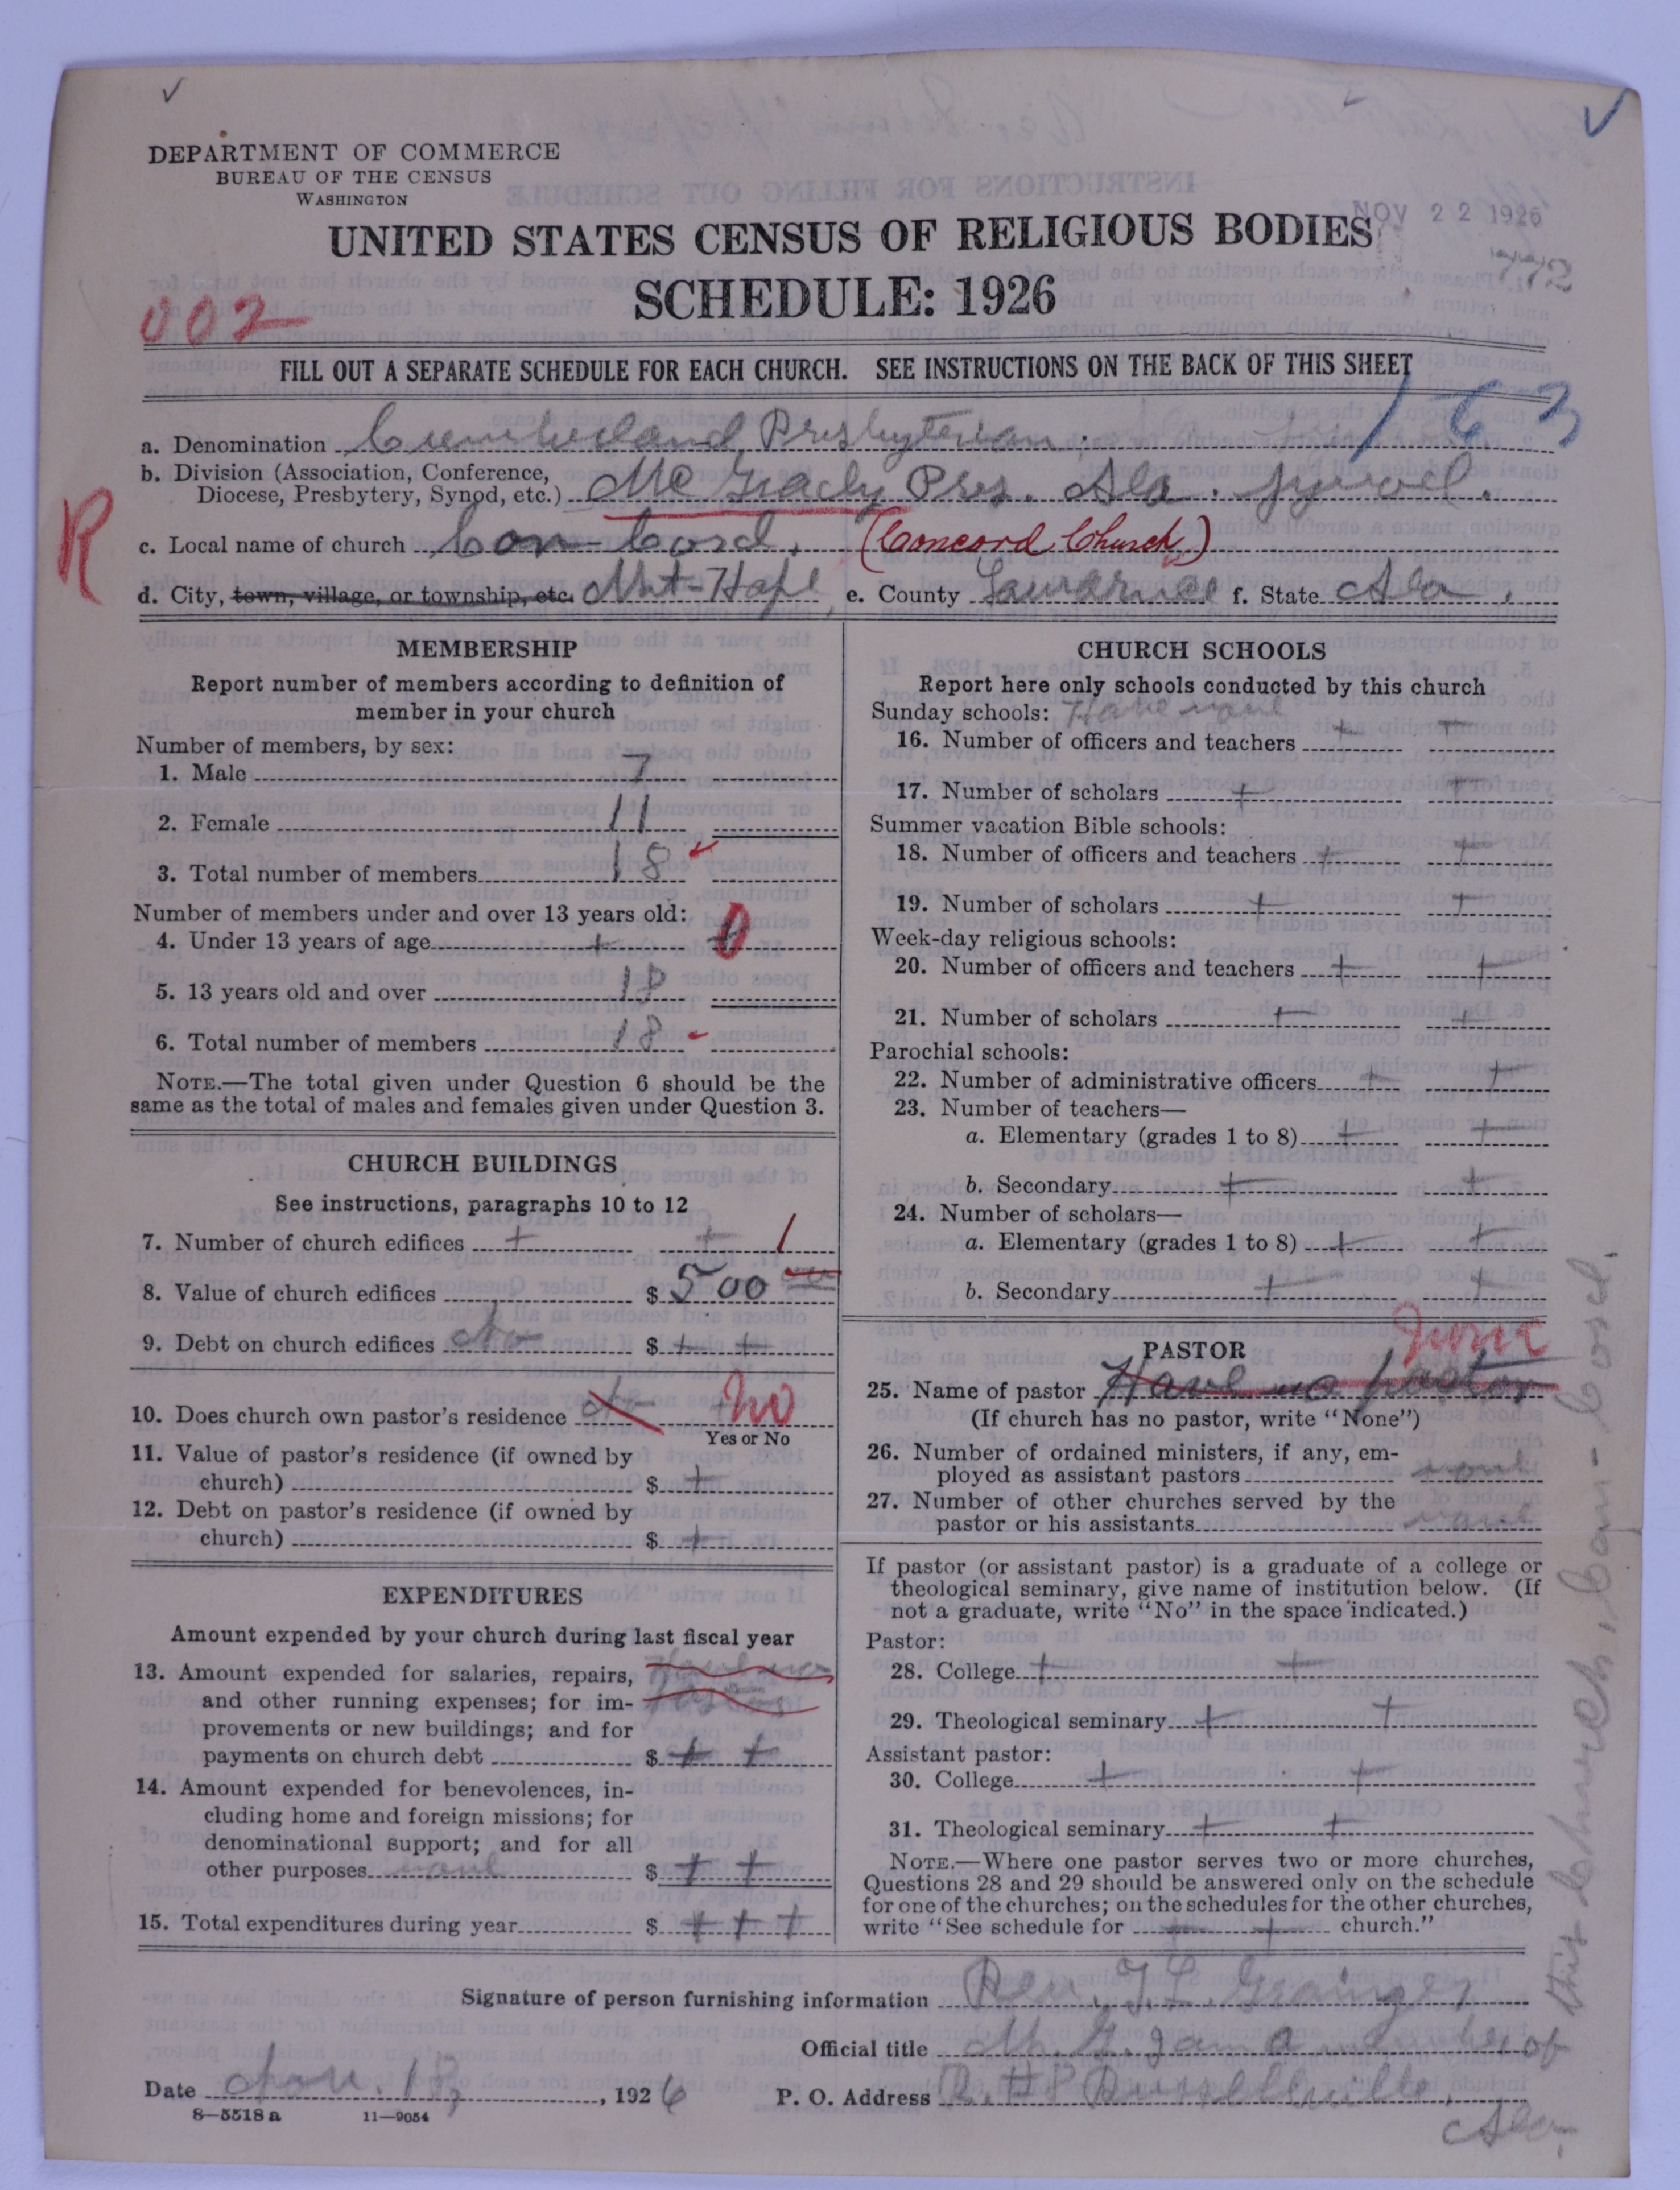 DEPARTMENT OF COMMERCE
BUREAU OF THE CENSUS
WASHINGTON
UNITED STATES CENSUS OF RELIGIOUS BODIES
NOV 22 1926
SCHEDULE: 1926
002
FILL OUT A SEPARATE SCHEDULE FOR EACH CHURCH. SEE INSTRUCTIONS ON THE BACK OF THIS SHEET
163
a. Denomination Cumberland Presbyterian.
b. Division (Association, Conference,
Diocese, Presbytery, Synod, etc.) Mc Grady Pres. Ala. Synod.
R
c. Local name of church Con-Cord. (Concord Church)
d. City, town, village, or township, etc. Mt-Hope e. County Lawrence f. State Ala.
MEMBERSHIP
Report number of members according to definition of
member in your church
Number of members, by sex:
1. Male 7
2. Female 11
3. Total number of members 18
Number of members under and over 13 years old:
4. Under 13 years of age + 0
5. 13 years old and over 18
6. Total number of members 18
NOTE.—The total given under Question 6 should be the
same as the total of males and females given under Question 3.
CHURCH BUILDINGS
See instructions, paragraphs 10 to 12
7. Number of church edifices + + 1
8. Value of church edifices $ 500
9. Debt on church edifices No $ + +
10. Does church own pastor's residence No No
Yes or No
11. Value of pastor's residence (if owned by
church) $ +
12. Debt on pastor's residence (if owned by
church) $ +
EXPENDITURES
Amount expended by your church during last fiscal year
13. Amount expended for salaries, repairs, Have no
and other running expenses; for im- Pastor
provements or new buildings; and for
payments on church debt $ + +
14. Amount expended for benevolences, in-
cluding home and foreign missions; for
denominational support; and for all
other purposes none $ + +
15. Total expenditures during year $ + + +
CHURCH SCHOOLS
Report here only schools conducted by this church
Sunday schools: Have none
16. Number of officers and teachers + +
17. Number of scholars + +
Summer vacation Bible schools:
18. Number of officers and teachers + +
19. Number of scholars + +
Week-day religious schools:
20. Number of officers and teachers + +
21. Number of scholars + +
Parochial schools:
22. Number of administrative officers + +
23. Number of teachers—
a. Elementary (grades 1 to 8) + +
b. Secondary + +
24. Number of scholars—
a. Elementary (grades 1 to 8) + +
b. Secondary + +
PASTOR
None
25. Name of pastor Have no pastor
(If church has no pastor, write "None")
26. Number of ordained ministers, if any, em-
ployed as assistant pastors none
27. Number of other churches served by the
pastor or his assistants none
If pastor (or assistant pastor) is a graduate of a college or
theological seminary, give name of institution below. (If
not a graduate, write "No" in the space indicated.)
Pastor:
28. College + +
29. Theological seminary + +
Assistant pastor:
30. College + +
31. Theological seminary + +
NOTE.—Where one pastor serves two or more churches,
Questions 28 and 29 should be answered only on the schedule
for one of the churches; on the schedules for the other churches,
write "See schedule for + + church."
Signature of person furnishing information Rev. J. L. Grainger
Official title M. G. I am a member of
this church, Con-Cord.
Date Nov. 18, 1926 P. O. Address R. #8 Russellville,
Ala.
8—5518a 11—9054